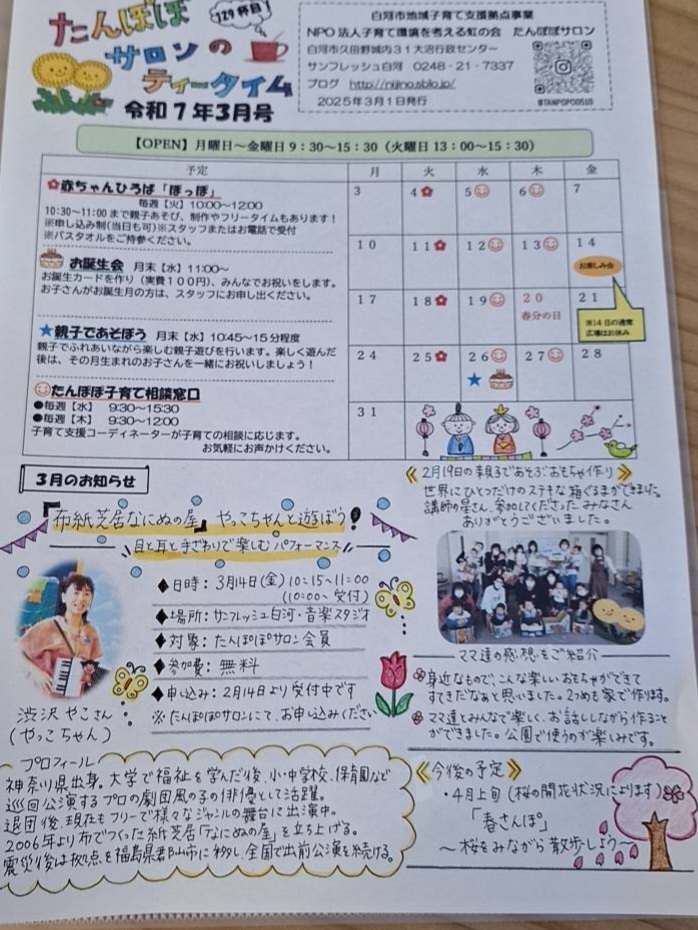 たんぽぽサロンのティータイム
129杯目!
令和7年3月号
白河市地域子育て支援拠点事業
NPO法人子育て環境を考える虹の会 たんぽぽサロン
白河市久田野城内31大沼行政センター
サンフレッシュ白河 0248-21-7337
ブログ http://nijino.sblo.jp/
2025年3月1日発行
@TANPOPO0510
【OPEN】月曜日~金曜日9:30~15:30(火曜日13:00~15:30)
予定
月 火 水 木 金
3 4 5 6 7
10 11 12 13 14
お楽しみ会
17 18 19 20 21
春分の日
※14日の通常
広場はお休み
24 25 26 27 28
31
赤ちゃんひろば「ぽっぽ」
毎週【火】10:00~12:00
10:30~11:00まで親子あそび、制作やフリータイムもあります!
※申し込み制(当日も可)※スタッフまたはお電話で受付
※バスタオルをご持参ください。
お誕生会 月末【水】11:00~
お誕生カードを作り(実費100円)、みんなでお祝いをします。
お子さんがお誕生月の方は、スタッフにお申し出ください。
★親子であそぼう 月末【水】10:45~15分程度
親子でふれあいながら楽しむ親子遊びを行います。楽しく遊んだ
後は、その月生まれのお子さんを一緒にお祝いしましょう!
たんぽぽ子育て相談窓口
●毎週【水】 9:30~15:30
●毎週【木】 9:30~12:00
子育て支援コーディネーターが子育ての相談に応じます。
お気軽にお声かけください。
3月のお知らせ
『布紙芝居なにぬの屋』やっこちゃんと遊ぼう!
目と耳と手ざわりで楽しむパフォーマンス
◆日時:3月14日(金)10:15~11:00
(10:00~受付)
◆場所:サンフレッシュ白河・音楽スタジオ
◆対象:たんぽぽサロン会員
◆参加費:無料
◆申し込み:2月14日より受付中です
※たんぽぽサロンにて、お申し込みください
渋沢やこさん
(やっこちゃん)
プロフィール
神奈川県出身。大学で福祉を学んだ後、小・中学校、保育園など
巡回公演するプロの劇団風の子の俳優として活躍。
退団後、現在もフリーで様々なジャンルの舞台に出演中。
2006年より布でつくった紙芝居「なにぬの屋」を立ち上げる。
震災後は拠点を福島県郡山市に移し、全国で出前公演を続ける。
《2月19日の親子であそぶおもちゃ作り》
世界にひとつだけのステキな箱ぐるまができました。
講師の星さん、参加してくださったみなさん
ありがとうございました。
ママ達の感想をご紹介
身近なもので、こんな楽しいおもちゃができて
すてきだなぁと思いました。2つめも家で作ります。
ママ達とみんなで楽しく、お話ししながら作ること
ができました。公園で使うのが楽しみです。
《今後の予定》
・4月上旬(桜の開花状況によります)
「春さんぽ」
~桜をみながら散歩しよう~